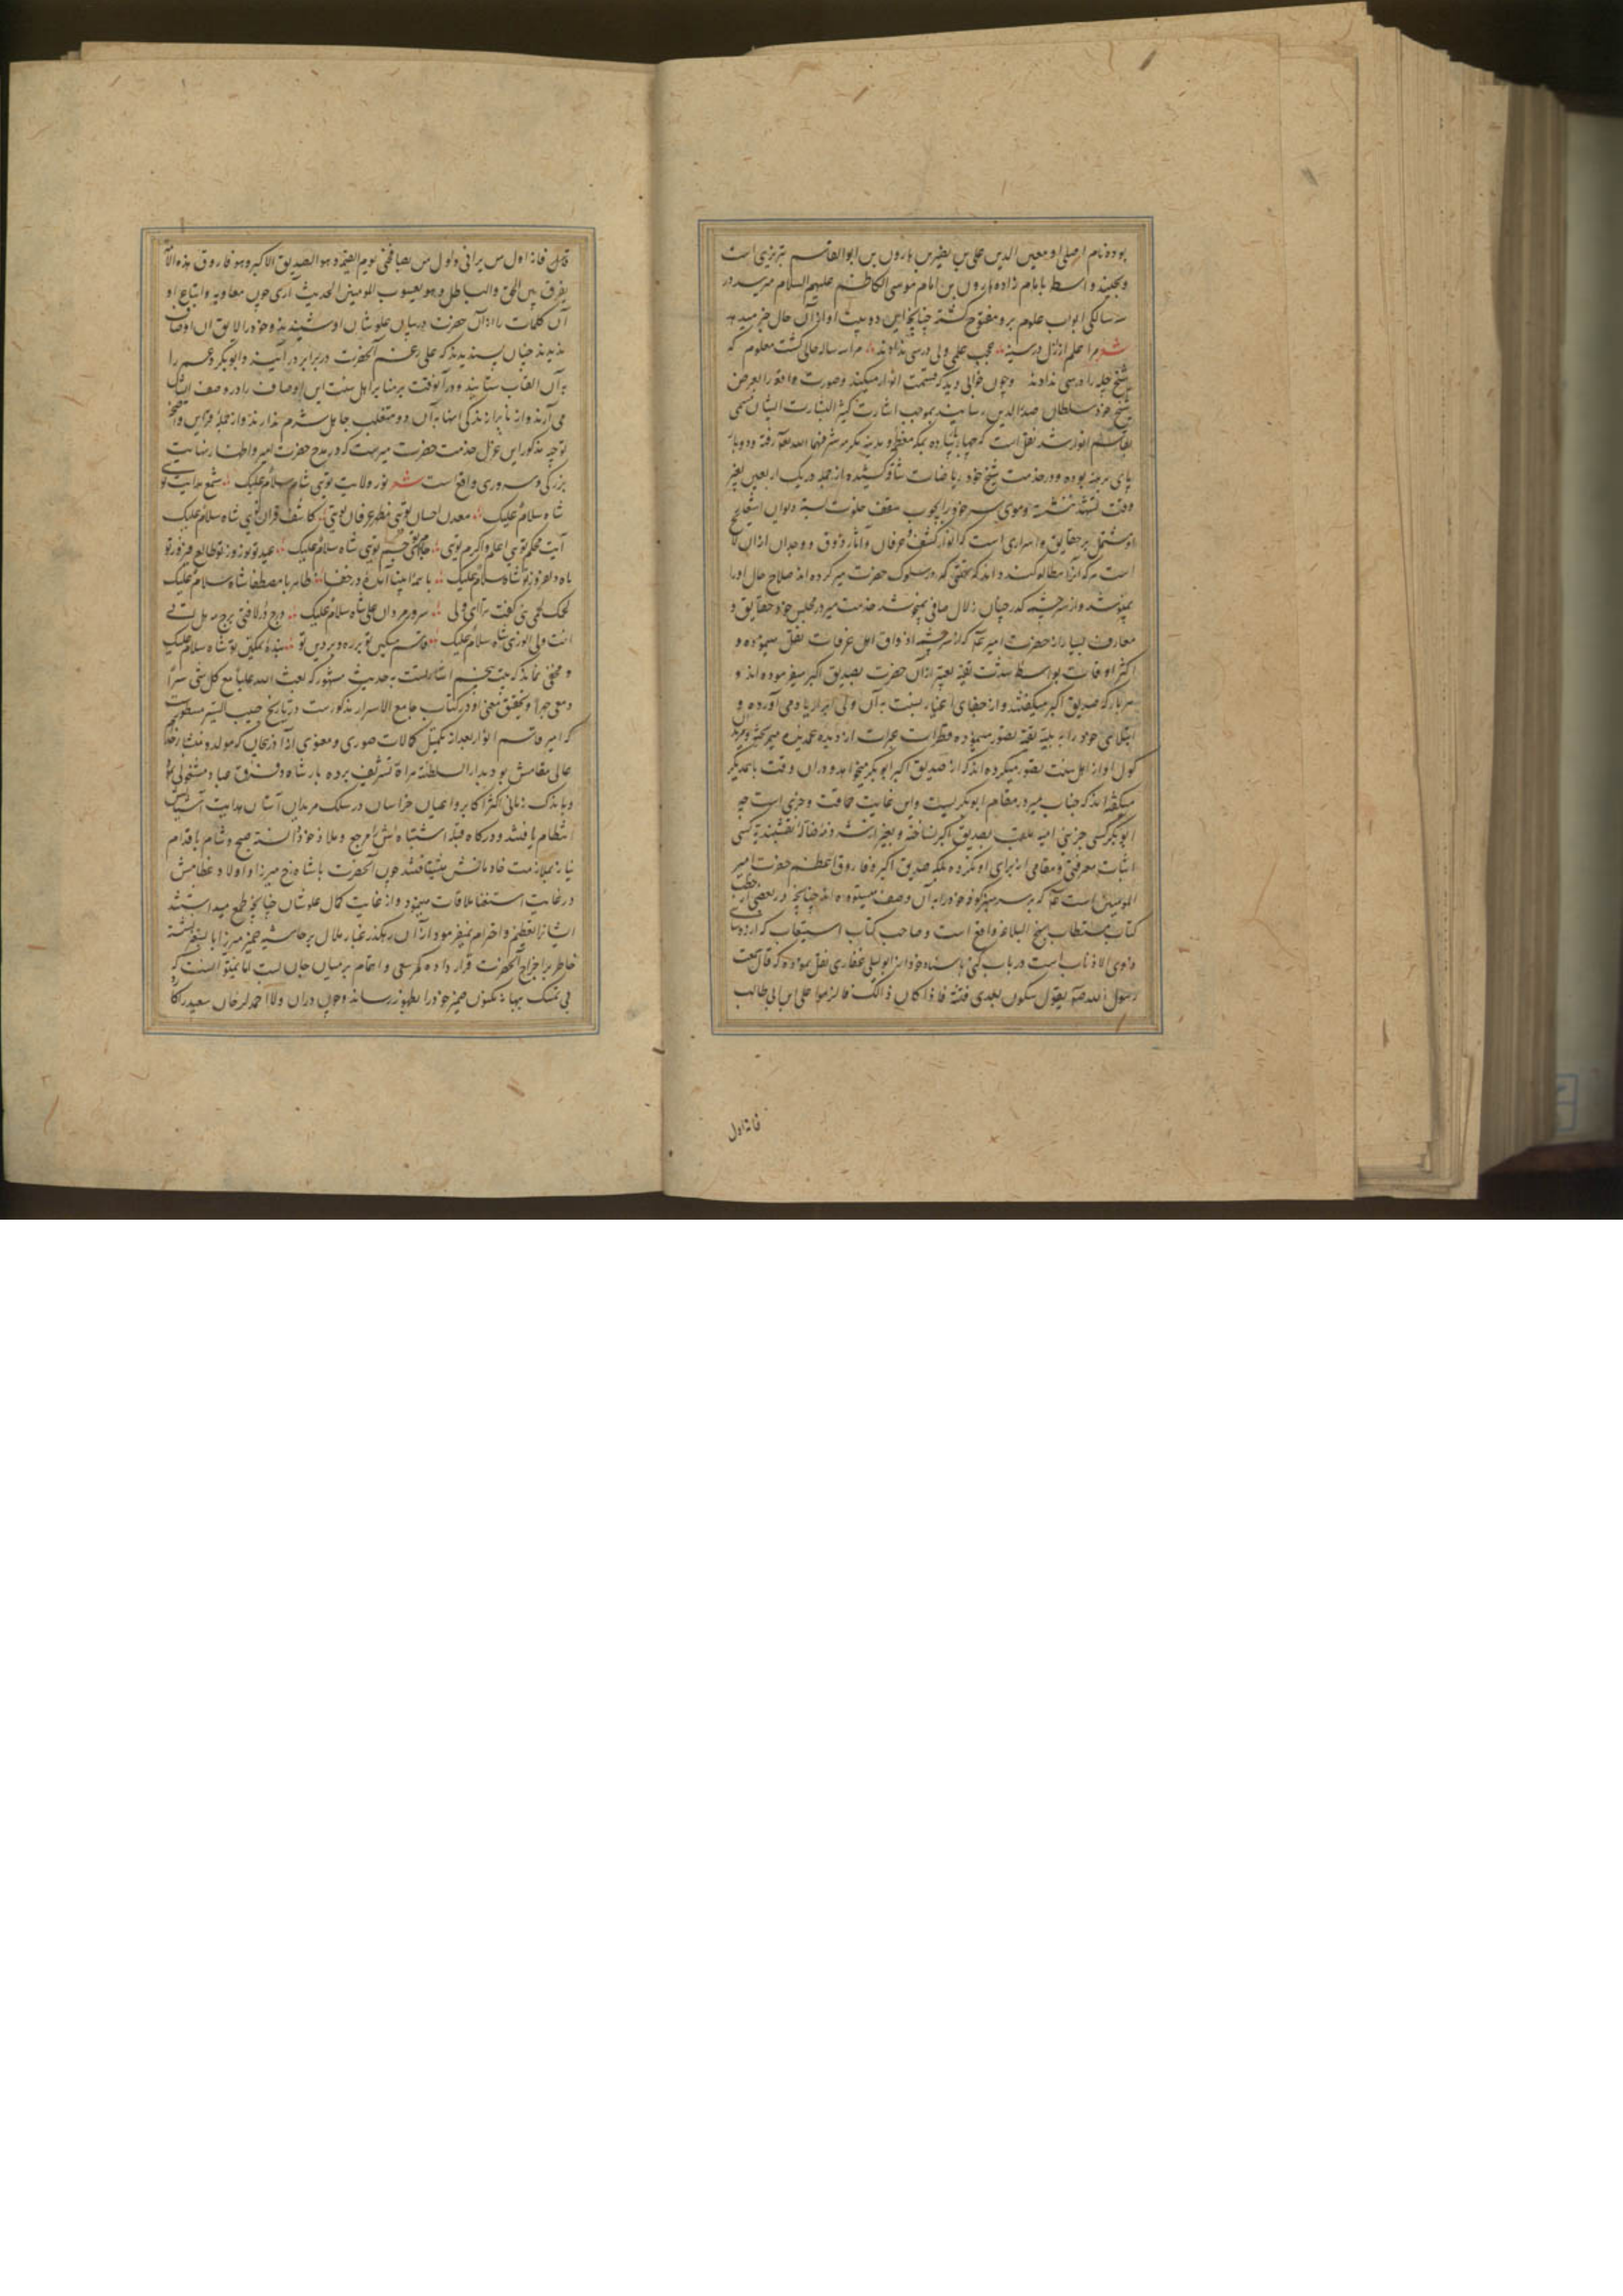 بوده نام اصلی او معین الدین علی بن نصیر بن هارون بن ابو القاسم تبریزی است
و بچند واسط بامام زاده هارون بن امام موسی الکاظم علیهم السلام میرسد در
سه سالگی ابواب علوم برو مفتوح گشته چنانچه این دو بیت او از آن حال خبر میدهد
شعر مرا علم ازل در سینه دادند عجب علمی ولی درسی ندادند مرا سه ساله حالی گشت معلوم که
شیخ چله را درسی ندادند و چون خوابی دید که قسمت انوار میکند و صورت واقعه را بعرض
شیخ خود سلطان صدر الدین رسانید بموجب اشارت کثیر البشارت ایشان مسمی
بقاسم انوار شد نقل است که چهار بار پیاده بمکه معظمه و مدینه مکرمه شرفهما الله تعالی رفته و دو بار
پای برهنه بوده و در خدمت شیخ خود ریاضات شاق کشیده از جمله در یک اربعین بغیر
وقت تشهد ننشسته و موی سر خود را بچوب سقف خلوت بسته دیوان
او مشتمل بر حقایق و اسراری است که انوار کشف و عرفان و آثار ذوق و وجدان از آن
است هر که آنرا مطالعه کند داند که حضرت میر کرده اند صلاح حال او را
و از سرچشمه که در چنان زلال صافی شد خدمت میر در مجلس خود حقایق و
معارف بسیار از حضرت امیر که سرچشمه اذواق اهل عرفانست نقل مینموده و
اکثر اوقات بواسطه شدت تقیه تعبیر از آن حضرت بصدیق اکبر میفرموده اند و
هر بار که صدیق اکبر میگفتند و از جفای اغیار نسبت به آن ولی ابرار یاد می آورده و
ابتلای خود را به بلیه تقیه تصور مینموده قطرات عبرات از دیده غمدیده میریخته و مرید
گول او از اهل سنت تصور میکرده اند که از صدیق اکبر ابوبکر میخواهد و در آن وقت با یکدیگر
میگفته اند که جناب میر در مقام ابوبکریست و این غایت حماقت و خریست چه
ابوبکر کسی جز بنی امیه ملقب بصدیق اکبر نساخته و بغیر از نقشبندیه کسی
اثبات معرفتی و مقامی از برای او نکرده بلکه صدیق اکبر و فاروق اعظم حضرت امیر
المومنین است که بر سر منبر کوفه خود را به آن وصف میستوده اند چنانچه در بعضی از خطب
کتاب مستطاب نهج البلاغه واقع است و صاحب کتاب استیعاب که از روسای
ذوی الاذناب است در باب کنی باسناد خود از ابو لیلی غفاری نقل نموده که قال سمعت
رسول الله صم یقول سکون بعدی فتنة فاذا کان ذلک فالزموا علی ابن ابی طالب
فانه اول
فانه اول من یرانی و اول من یصافحنی یوم القیمة و هو الصدیق الاکبر و هو فاروق هذه الامة
یفرق بین الحق والباطل و هو یعسوب المومنین الحدیث آری چون معاویه و اتباع او
آن کلمات را از آن حضرت در بیان علو شان او شنیدند و خود را لایق آن اوصاف
ندیدند چنان پسندیدند که علی رغم آنحضرت در برابر در آیند و ابوبکر و عمر را
به آن القاب ستایند و در آنوقت بر منابر اهل سنت این اوصاف را در وصف ایشان
می آرند و از نابرازندگی اینها به آن دو متغلب جاهل شرم ندارند و از جمله قراین واضحه
توجیه مذکور این غزل خدمت حضرت میرست که در مدح حضرت امیر و اظهار نهایت
بزرگی و سروری واقع است شعر نور ولایت تویی شاه سلام علیک شمع هدایت تویی
شاه سلام علیک معدن احسان تویی مظهر عرفان تویی کاشف قران تویی شاه سلام علیک
آیت محکم تویی اعلم و اکرم تویی تویی شاه سلام علیک عید تو نوروز تو طالع فیروز تو
ماه دلفروز تو شاه سلام علیک با همه انبیا آمده در خفا ظاهر با مصطفا شاه سلام علیک
لحمک لحمی نبی گفت ترا ای ولی سرور مردان علی شاه سلام علیک درج در لافتی برج مه هل اتی
انت ولی الوری شاه سلام علیک قاسم مسکین تو بر ره و بر دین تو بنده تمکین تو شاه سلام علیک
و مخفی نماند که بیت پنجم اشارتست به حدیث مشهور که بعث الله علیا مع کل نبی سرا
و معی جهرا و تحقیق معنی او در کتاب جامع الاسرار مذکورست در تاریخ حبیب السیر مسطورست
که امیر قاسم انوار بعد از تکمیل کمالات صوری و معنوی از آذربیجان که مولد و منشا
عالی مقامش بود بدار السلطنة هراة تشریف برده بارشاد فرق عباد مشغولی نمود
و باندک زمانی اکثر اکابر و اعیان خراسان در سلک مریدان آستان هدایت آشیانش
انتظام یافتند و درگاه قبله اشتباهش مرجع و ملاذ خود دانسته صبح و شام باقدام
نیاز بملازمت خادمانش شتافتند چون آنحضرت با شاهرخ میرزا و اولاد عظامش
در غایت استغنا ملاقات مینمود و از غایت کمال علو شان چنانچه طمع میداشتند
ایشانرا تعظیم و احترام نمیفرمود از آن رهگذر غبار ملال بر حاشیه ضمیر میرزا بایسنقر نشسته
خاطر بر اخراج آنحضرت قرار داده کمر سعی و اهتمام بر میان جان بست اما نمیتوانست که
بی تمسک بهانه مکنون ضمیر خود را بظهور رساند و چون در آن ولا احمد لر خاقان سعید را کارد